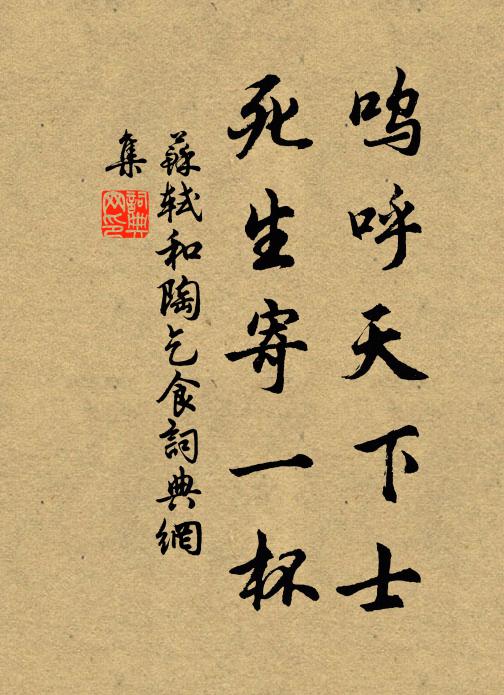 呜呼天下士
死生寄一杯
蘇軾和陶乞食詞典網
集
詞典
网印